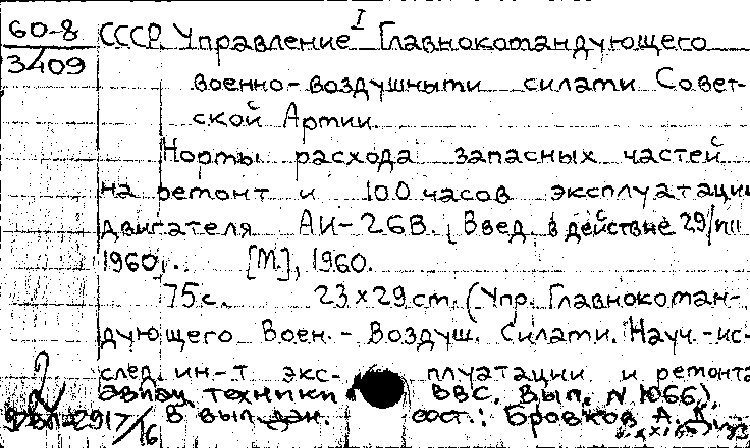 60-8
3409
I
СССР. Управление Главнокомандующего
военно-воздушными силами Совет-
ской Армии.
Нормы расхода запасных частей
на ремонт и 100 часов эксплуатации
двигателя АИ-26В. Введ. в действие 29/
1960. [М.], 1960.
75с. 23×29см. (Упр. Главнокоман-
дующего Воен.-Воздуш. Силами. Науч.-ис-
след. ин-т экс- плуатации и ремонта
авиац. техники ВВС. Вып. N 1066).
2
В вып. дан. сост.: Бровков А.
16